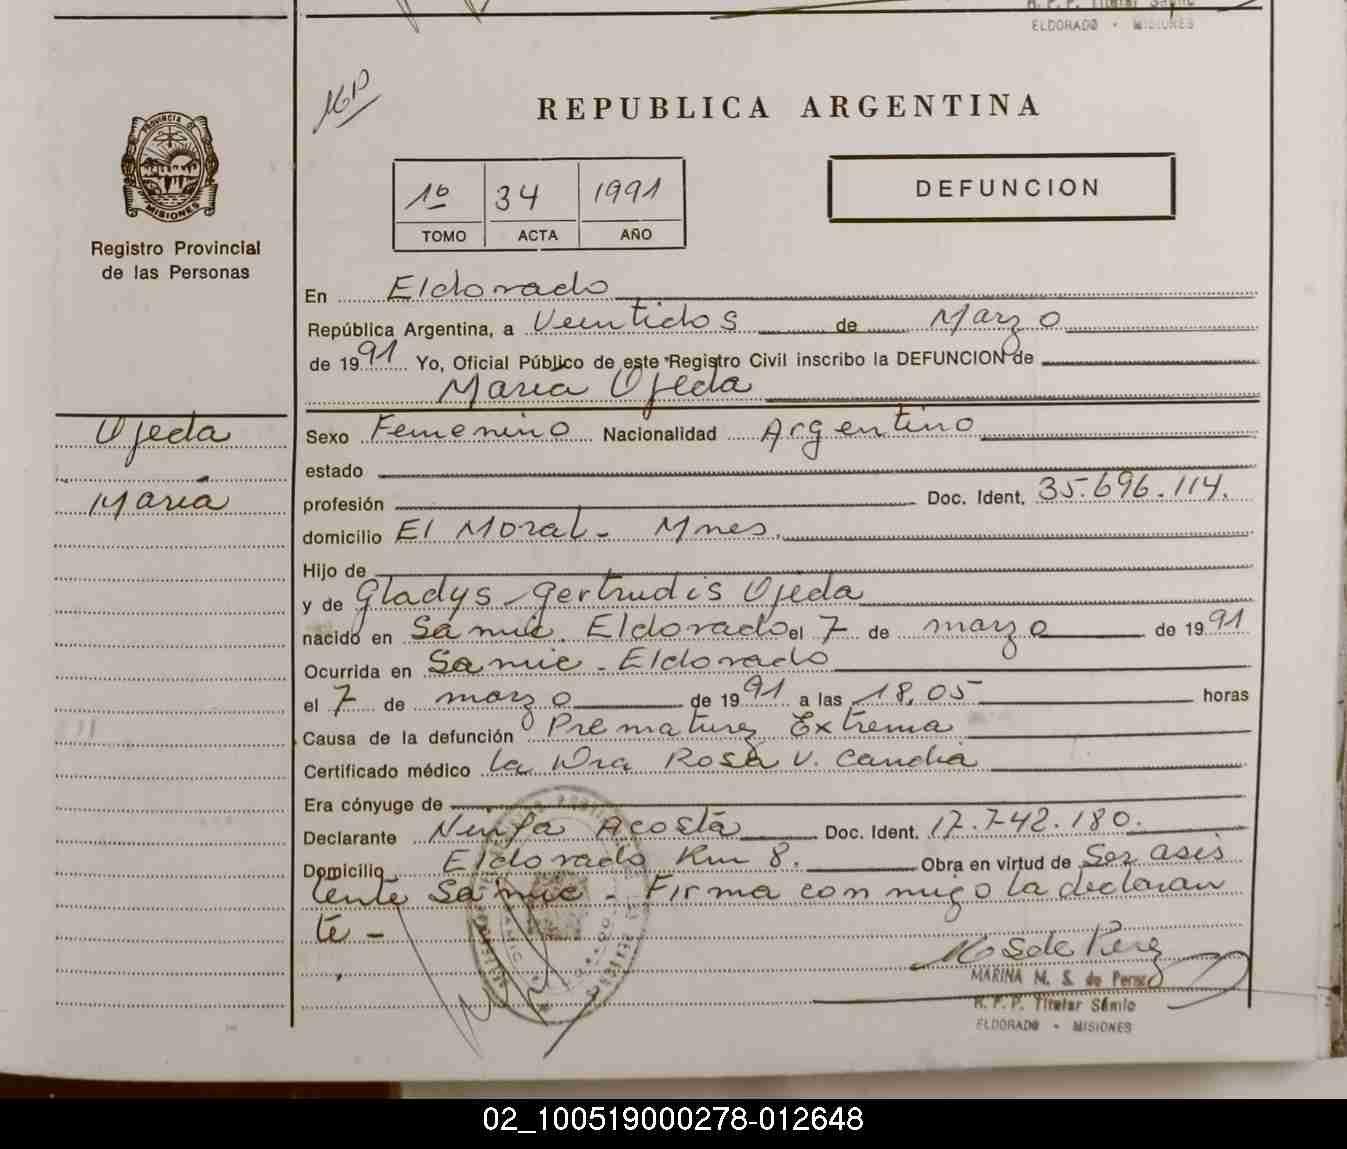 ELDORADO - MISIONES
REPUBLICA ARGENTINA
PROVINCIA DE
MISIONES
Registro Provincial
de las Personas
1º 34 1991
TOMO ACTA AÑO
DEFUNCION
En Eldorado
República Argentina, a Veintidos de Marzo
de 1991 Yo, Oficial Público de este Registro Civil inscribo la DEFUNCION de
Maria Ojeda
Ojeda
Maria
Sexo Femenino Nacionalidad Argentino
estado
profesión Doc. Ident. 35.696.114.
domicilio El Moral - Mnes.
Hijo de
y de Gladys Gertrudis Ojeda
nacido en Samic. Eldorado el 7 de marzo de 1991
Ocurrida en Samic - Eldorado
el 7 de marzo de 1991 a las 18,05 horas
Causa de la defunción Prematurez Extrema
Certificado médico La Dra Rosa V. Candia
Era cónyuge de
Declarante Ninfa Acosta Doc. Ident. 17.742.180.
Domicilio Eldorado Km 8. Obra en virtud de Ser asis
tente Samic - Firma con migo la declaran
te -
M S de Perez
MARINA M. S. de Perez
R. P. P. Titular Samic
ELDORADO - MISIONES
02_100519000278-012648